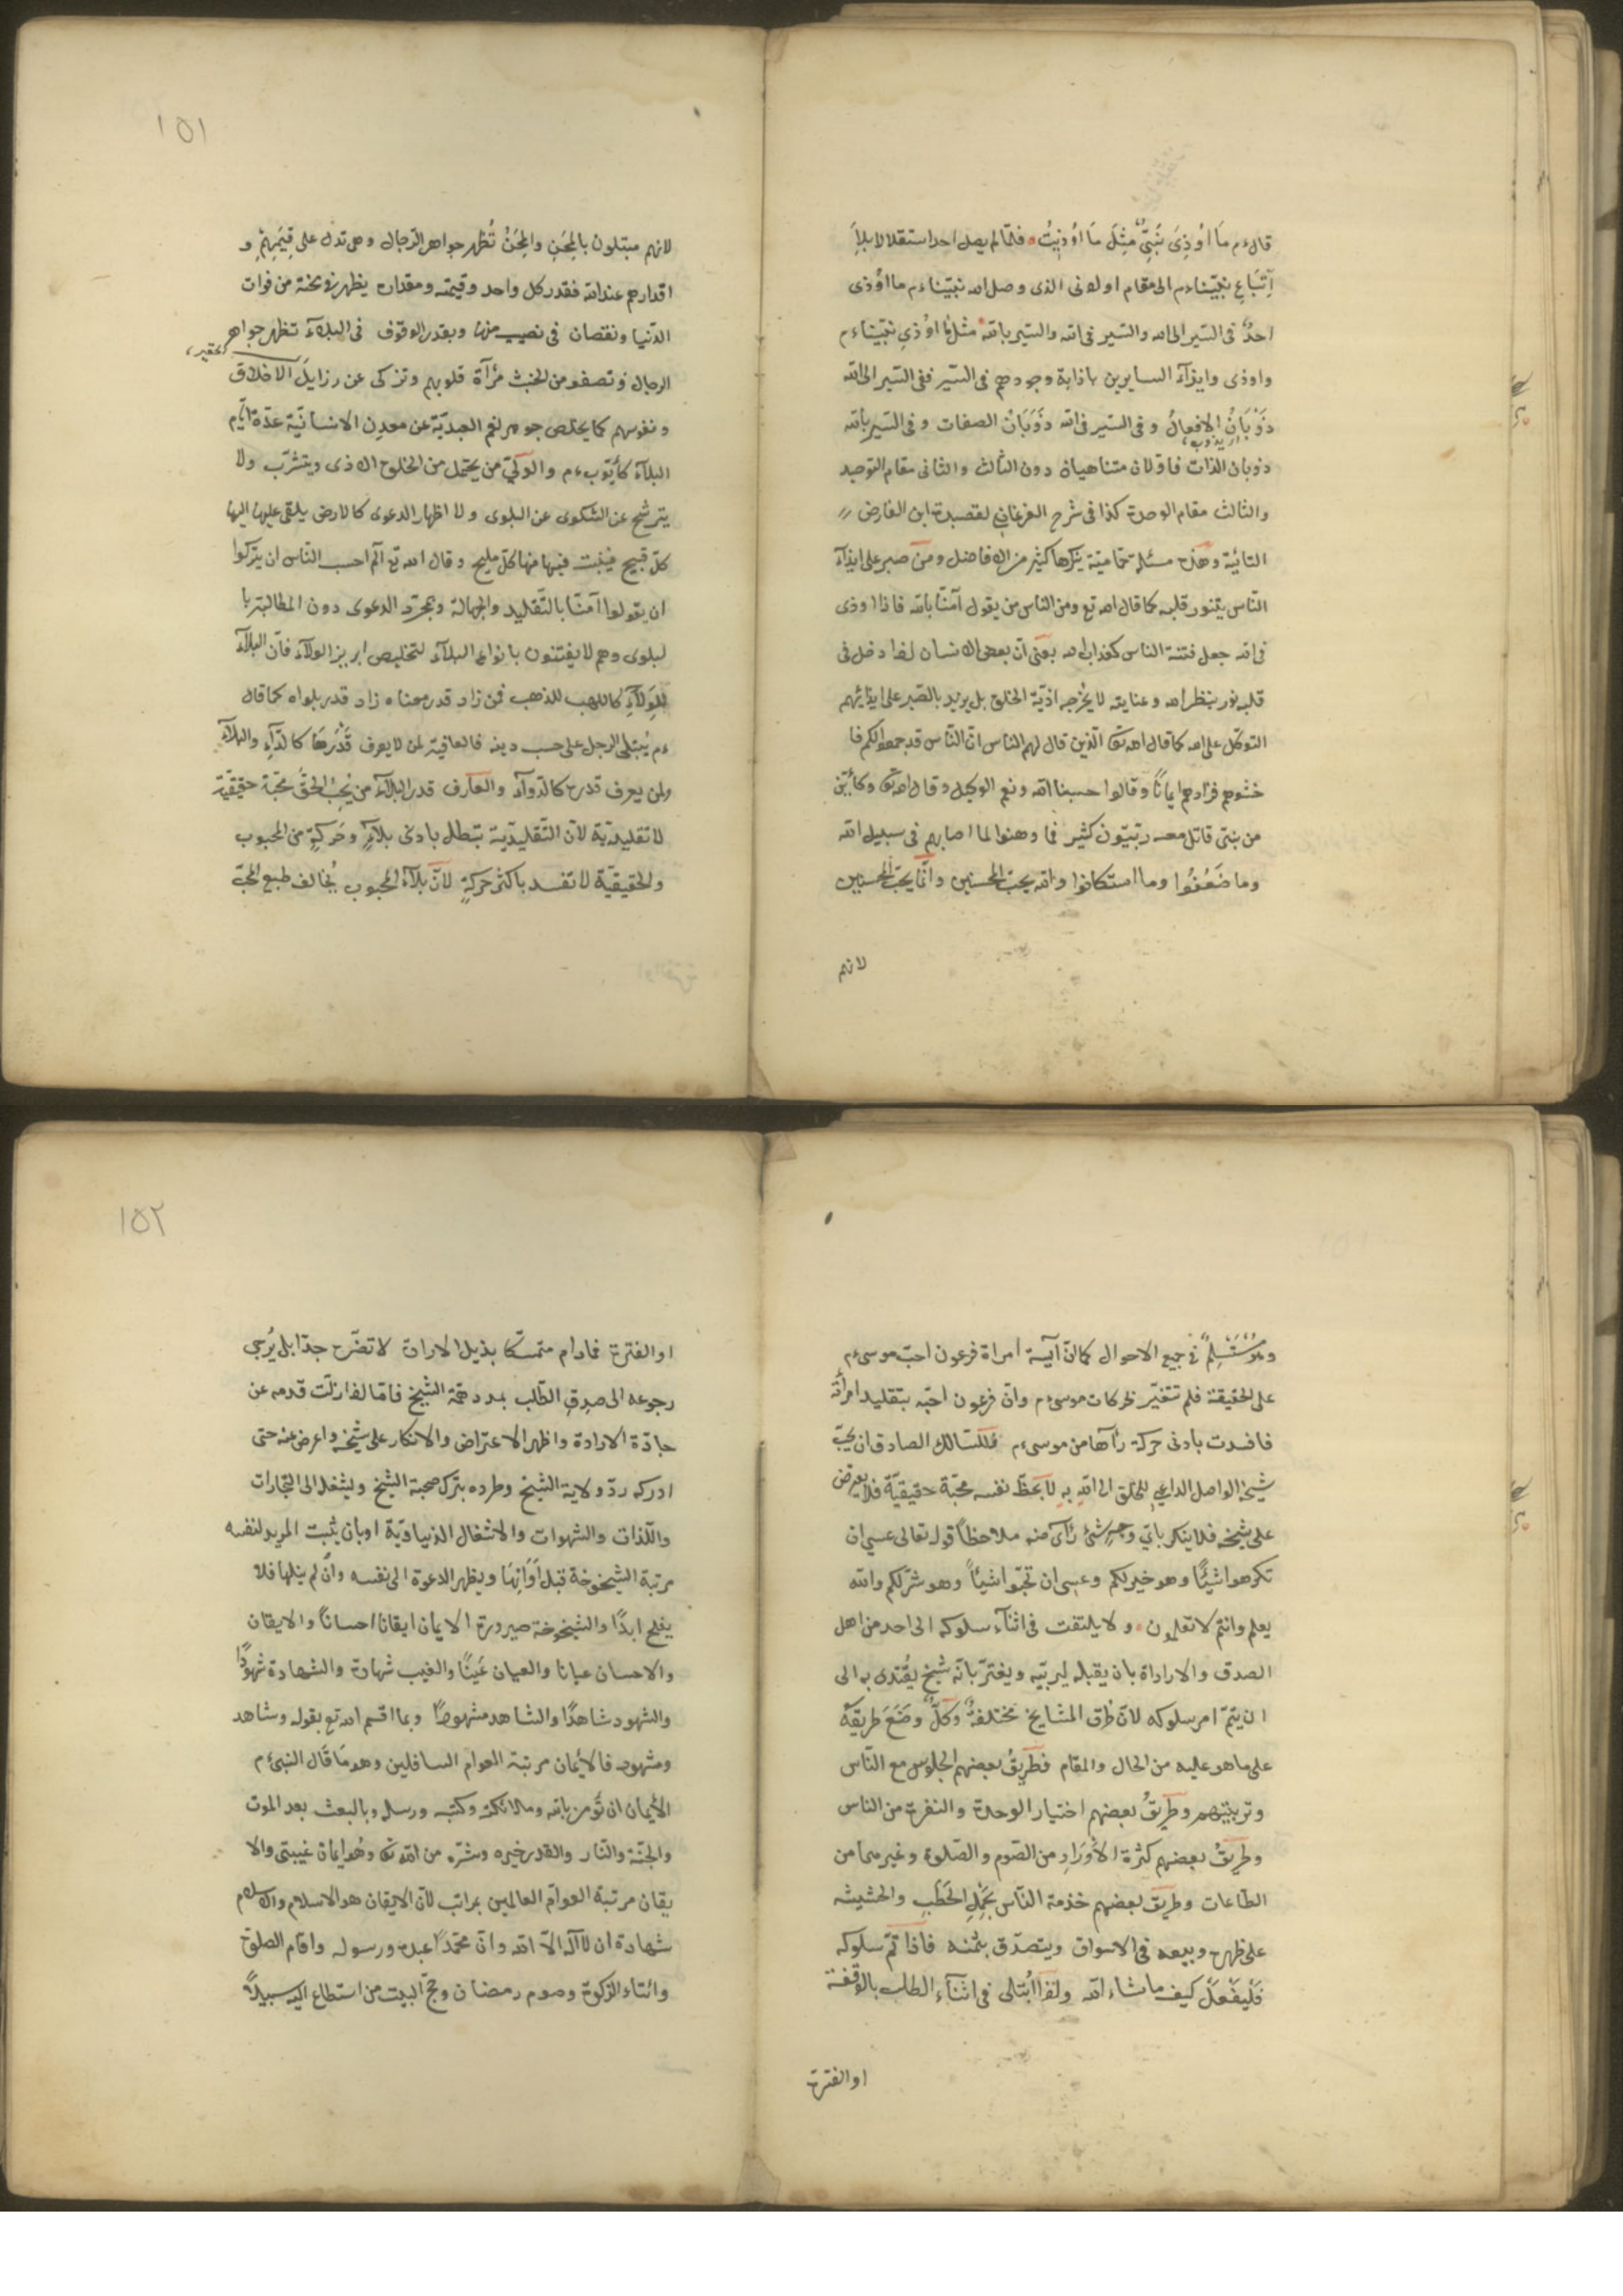 قال ءم مَا اُوذِىَ نَبِىٌّ مِثْلَ مَا اُوذِيتُ فلمّا لم يصل احد استقلالا بلا
اِتّبَاعِ نبيّنا ءم الى مقام او ادنى الذى وصل اليه نبيّنا ءم ما اُوذى
احدٌ فى السّير الى الله والسّير فى الله والسّير بالله مثل ما اُوذى نبيّنا ءم
واوذى وايذآء السايرين باذابة وجودهم فى السّير ففى السّير الى الله
ذَوَبَانُ الافعالُ وفى السّير فى الله ذَوَبَانُ الصفات وفى السّير بالله
ذوبان الذات فاوّلان متناهيان دون الثالث والثانى مقام التوحيد
والثالث مقام الوحدة كذا فى شرح الفرغانى لقصيدة ابن الفارض
التائيّة وهذه مسئلة ينكرها كثير من الافاضل ومن صبر على ايذآء
النّاس يتنور قلبه كما قال الله تع ومن الناس من يقول آمنّا بالله فاذا اوذى
فى الله جعل فتنة الناس كعذاب الله يعنى انّ بعض الانسان اذا دخل فى
قلبه نور بنظر الله وعنايته لا يخرجه اذيّة الخلق بل يزيد بالصّبر على ايذائهم
التوكّل على الله كما قال الله تعّ الّذين قال لهم الناس انّ النّاس قد جمعوا لكم فا
خشوهم فزادهم ايمانًا وقالوا حسبنا الله ونعم الوكيل وقال الله تعّ وكأيّن
من نبىّ قاتل معه ربّيّون كثير فما وهنوا لما اصابهم فى سبيل الله
وما ضَعُفُوا وما استكانوا والله يحبّ المحسنين وانّما يحبّ المحسنين
لانهم
١٥١
لانهم مبتلون بالمِحَنِ والمِحَنُ تُظهر جواهر الرّجال وهى تدل على قِيَمِهِمْ و
اقدارهم عند الله فقدر كل واحد وقيمته ومقداره يظهر فى محنة من فوات
الدّنيا ونقصان فى نصيب منها وبقدر الوقوف فى البلآء تظهر جواهر
الرجال وتصفو من الخبث مرآة قلوبهم وتزكى عن رزايل الاخلاق
ونفوسهم كما يخلص جوهر نعم العبديّة عن معدن الانسانيّة عدّة ايّام
البلآء كأيّوب ءم والولىّ من يحتمل من الخلوج الاذى ويتشرّب ولا
يترشح عن الشكوى عن البلوى ولا اظهار الدعوى كالارض يلقى عليها اليها
كلّ قبيح فينبت فيها منها كلّ مليح وقال الله تع الم احسب النّاس ان يتركوا
ان يقولوا آمنّا بالتّقليد والجهالة وبمجرّد الدعوى دون المطالبة با
لبلوى وهم لا يفتنون بانواع البلآء لتخليص ابريز الولآء فانّ البلآء
لِلوَلآءِ كاللهب للذهب فمن زاد قدر معناه زاد قدر بلواه كما قال
ءم يُبتلى الرجل على حسب دينه فالعافية لمن لا يعرف قَدْرَهَا كالدّآءِ والبلآء
ولمن يعرف قدره كالدّوآء والعارف قدر البلآء من يُحِبّ الحقّ محبّة حقيقيّة
لا تقليديّة لانّ التّقليديّة تبطل بادنى بلآءٍ وحَركةٍ من المحبوب
والحقيقيّة لا تفسد باكثر حركةٍ لانّ بلآء المحبوب يُخالف طبع المحبّ
ومُسْتَسْلِمٌ فى جميع الاحوال كما انّ آسية امراة فرعون احبّ موسى ءم
على الحقيقة فلم تتغيّر لحركات موسى ءم وانّ فرعون احبّه بتقليد امرأته
فافسدت بادنى حركة رآها من موسى ءم فللسّالك الصادق ان يحبّ
شيخه الواصل الداعى للخلق الى الله به لا بحظّ نفسه محبّة حقيقيّة فلا يعترض
على شيخه فلا ينكر باىّ وجهٍ شئ رآى منه ملاحظاً قوله تعالى عسى ان
تكرهوا شيئًا وهو خير لكم وعسى ان تحبّوا شيئاً وهو شرّ لكم والله
يعلم وانتم لا تعلمون ولا يلتفت فى اثنآء سلوكه الى احد من اهل
الصدق والاراداة بان يقبله ليربّيه ويغترّ بانّه شيخ يُقتدى به الى
ان يتمّ امر سلوكه لانّ طرق المشايخ مختلفةٌ وكلٌّ وضَعَ طريقه
على ما هو عليه من الحال والمقام فطَريقُ بعضهم الجلوس مع النّاس
وتربيتهم وطريقُ بعضهم اختيار الوحدة والنفرة من الناس
وطريقُ بعضهم كثرة الأوْرَادِ من الصّوم والصّلوة وغيرهما من
الطاعات وطريق بعضهم خذمة النّاس بحَمْلِ الحَطَبِ والحشيشه
على ظهره وبيعه فى الاسواق ويتصدّق بثمنه فاذا تمّ سلوكه
فَليَفْعَلْ كيف ما شاء الله ولذا ابُتلى فى اثنآء الطلب بالوَقْفة
او الفترة
١٥٢
او الفترة فمادام متمسّكا بذيل الارادة لا تضّره جدّا بل يُرجى
رجوعه الى صدق الطّلب بمدد همّة الشّيخ فامّا اذا زلّت قدمه عن
جادّة الارادة واظهر الاعتراض والانكار على شيخه واعرض عنه حتى
ادركه ردّ ولاية الشّيخ وطرده بترك صحبة الشّيخ ويشغله الى التّجارات
واللّذات والشهوات والاشغال الدنياويّة او بان يثبت المريد لنفسه
مرتبة الشيخوخة قبل اَوَانِهَا ويظهر الدعوة الى نفسه وان لم ينلها فلا
يفلح ابدًا والشيخوخة صيرورة الايمان ايقانا احساناً والايقان
والاحسان عيانا والعيان عَينًا والغيب شهادة والشهادة شهودًا
والشهود شاهدًا والشاهد مشهودًا وبما اقسم الله تع بقوله وشاهد
ومشهود فالأيمان مرتبة العوام السافلين وهو مَا قَال النبى ءم
الأيمان ان تؤمن بالله وملائكته وكتبه ورسله وبالبعث بعد الموت
والجنّة والنّار والقدر خيره وشرّه من الله تعّ وهُو ايمان غيبىّ والا
يقان مرتبة العوامّ العالمين بمراتب لانّ الايقان هو الاسلام والاسلام
شهادة ان لا اله الاّ الله وانّ محمّداً عبده ورسوله واقام الصلوة
وائتاء الزّكوة وصوم رمضان وحجّ البيت من استطاع اليه سبيلاً